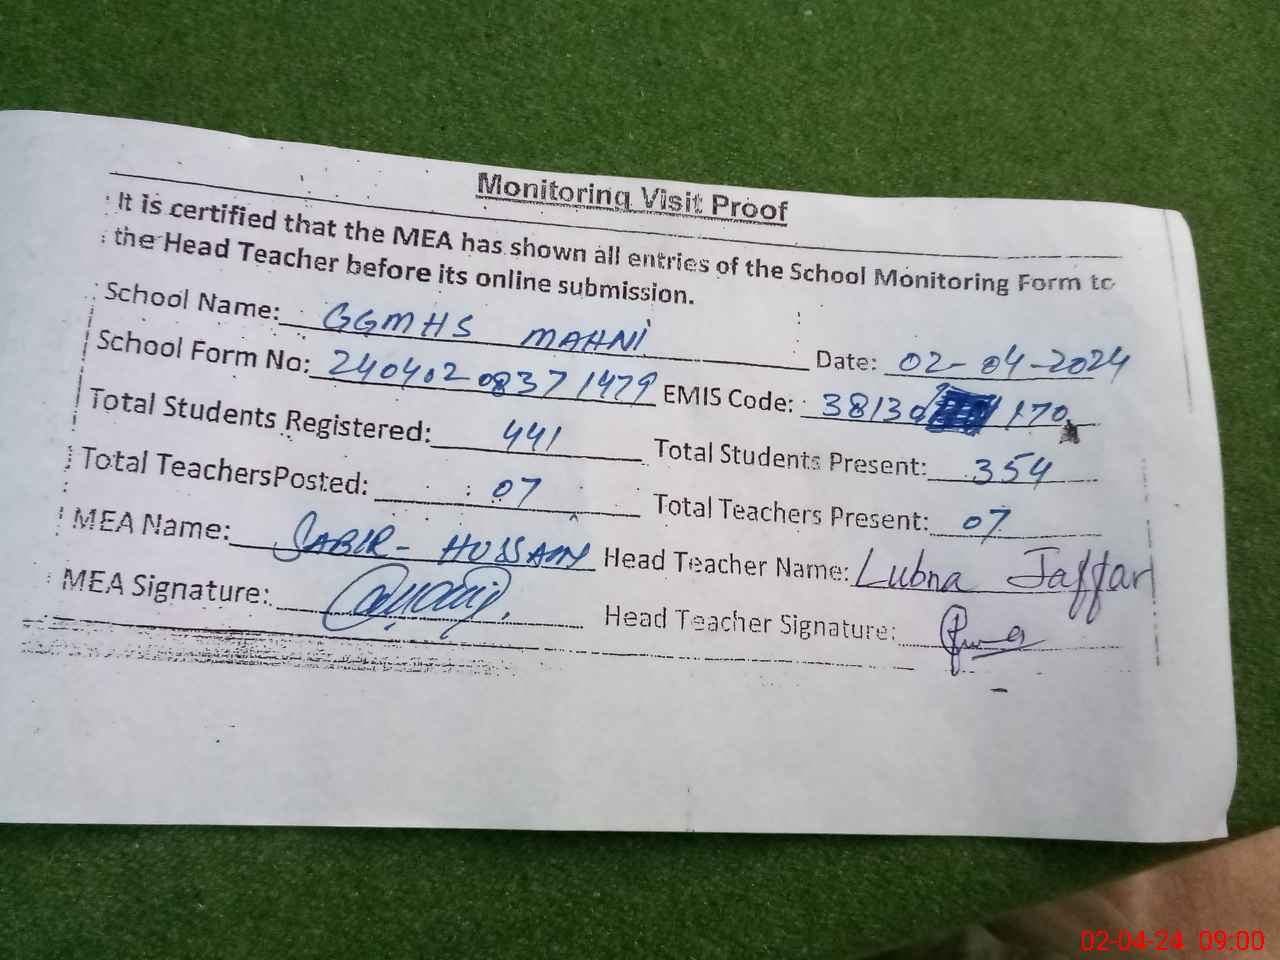 Monitoring Visit Proof
It is certified that the MEA has shown all entries of the School Monitoring Form to
the Head Teacher before its online submission.
School Name: GGMHS MAHNI Date: 02-04-2024
School Form No: 24040208371479 EMIS Code: 38130 170
Total Students Registered: 441 Total Students Present: 354
Total TeachersPosted: 07 Total Teachers Present: 07
MEA Name: SABIR-HUSSAIN Head Teacher Name: Lubna Jaffar
MEA Signature: Head Teacher Signature:
02-04-24 09:00